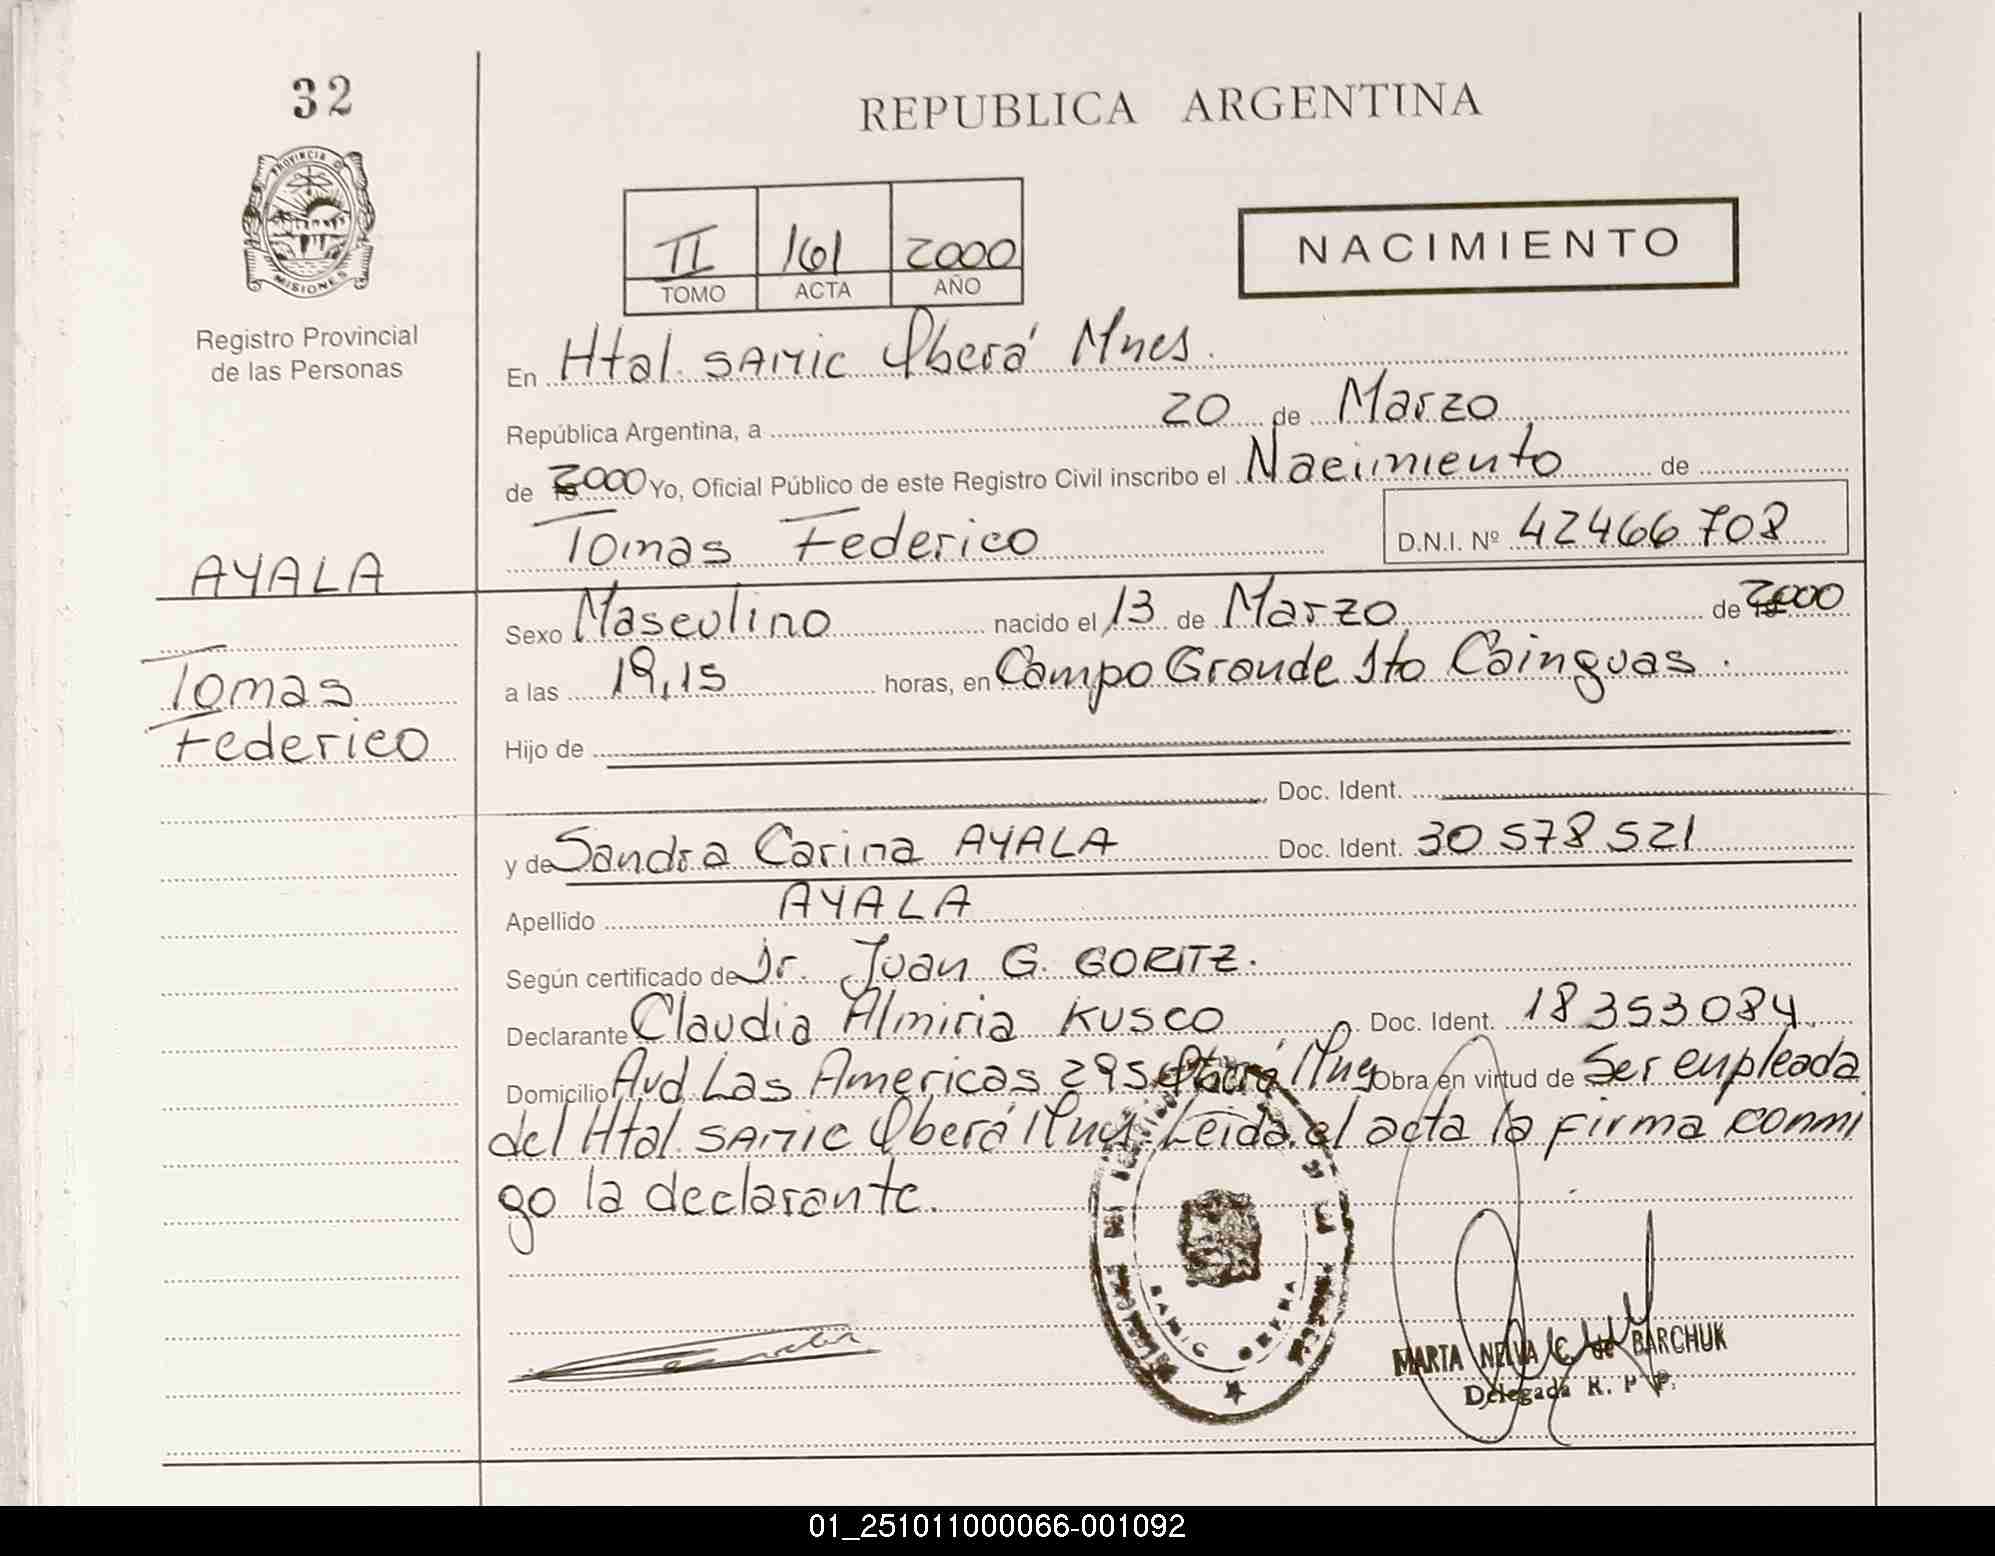 32
REPUBLICA ARGENTINA
PROVINCIA DE MISIONES
II 161 2000
TOMO ACTA AÑO
NACIMIENTO
Registro Provincial
de las Personas
En Htal. SAMIC Oberá Mnes.
República Argentina, a 20 de Marzo
de 2000 Yo, Oficial Público de este Registro Civil inscribo el Nacimiento de
Tomas Federico D.N.I. Nº 42466708
AYALA
Tomas
Federico
Sexo Masculino nacido el 13 de Marzo de 2000
a las 19,15 horas, en Campo Grande Dto Cainguas.
Hijo de
Doc. Ident.
y de Sandra Carina AYALA Doc. Ident. 30 578 521
Apellido AYALA
Según certificado de Dr. Juan G. GORITZ.
Declarante Claudia Almiria KUSCO Doc. Ident. 18 353 084
Domicilio Avd Las Americas 295 Oberá Mnes Obra en virtud de Ser enpleada
del Htal. SAMIC Oberá Mnes. Leida el acta la firma conmi
go la declarante.
SAMIC OBERA
MARTA NELVA C. de BARCHUK
Delegada R. P. P.
01_251011000066-001092